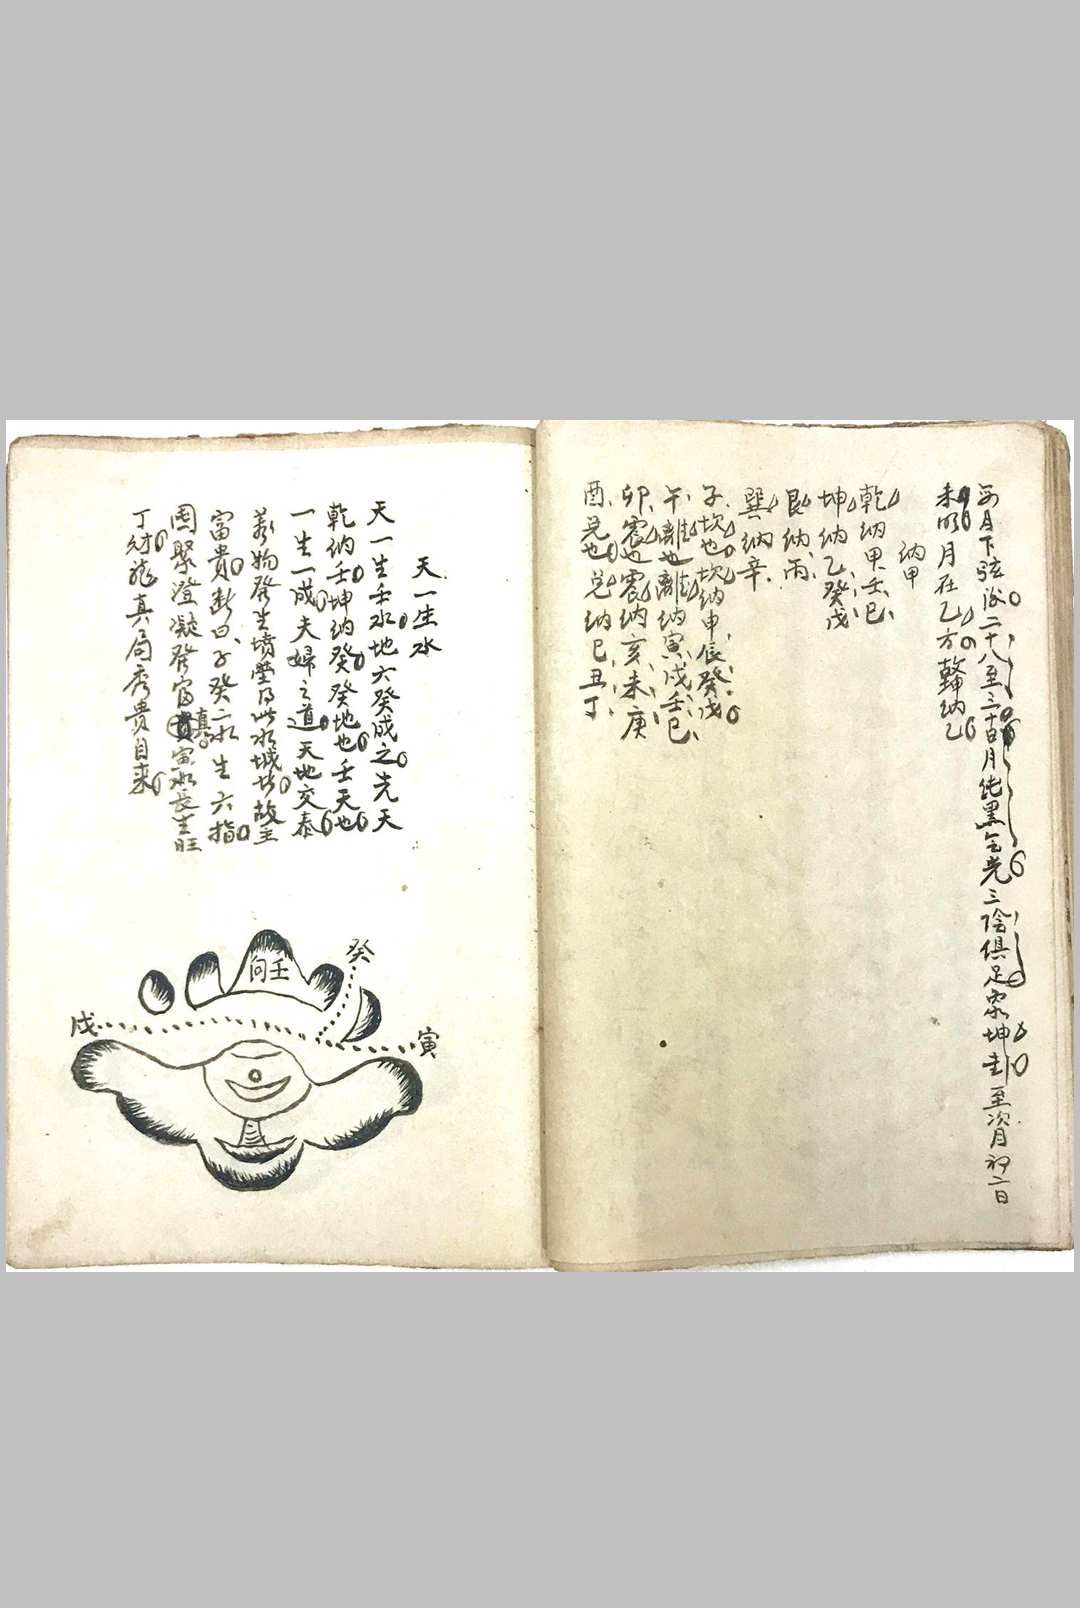 每月下弦後二十八至三十日月純黑無光三陰俱足象坤卦至次月初二日
未明月在乙方故坤納乙
納甲
乾納甲壬巳
坤納乙癸戊
艮納丙
巽納辛
子坎也坎納申辰癸戊
午離也離納寅戌壬巳
卯震也震納亥未庚
酉兌也兌納巳丑丁
天一生水
天一生壬水地六癸成之先天
乾納壬坤納癸癸地也壬天也
一生一成夫婦之道天地交泰
萬物發生墳塋得此水城皆故主
富貴断曰子癸二水生六指
團聚澄凝發富真寅水長生旺
丁財龍真局秀貴自来
向壬
癸
戌
寅